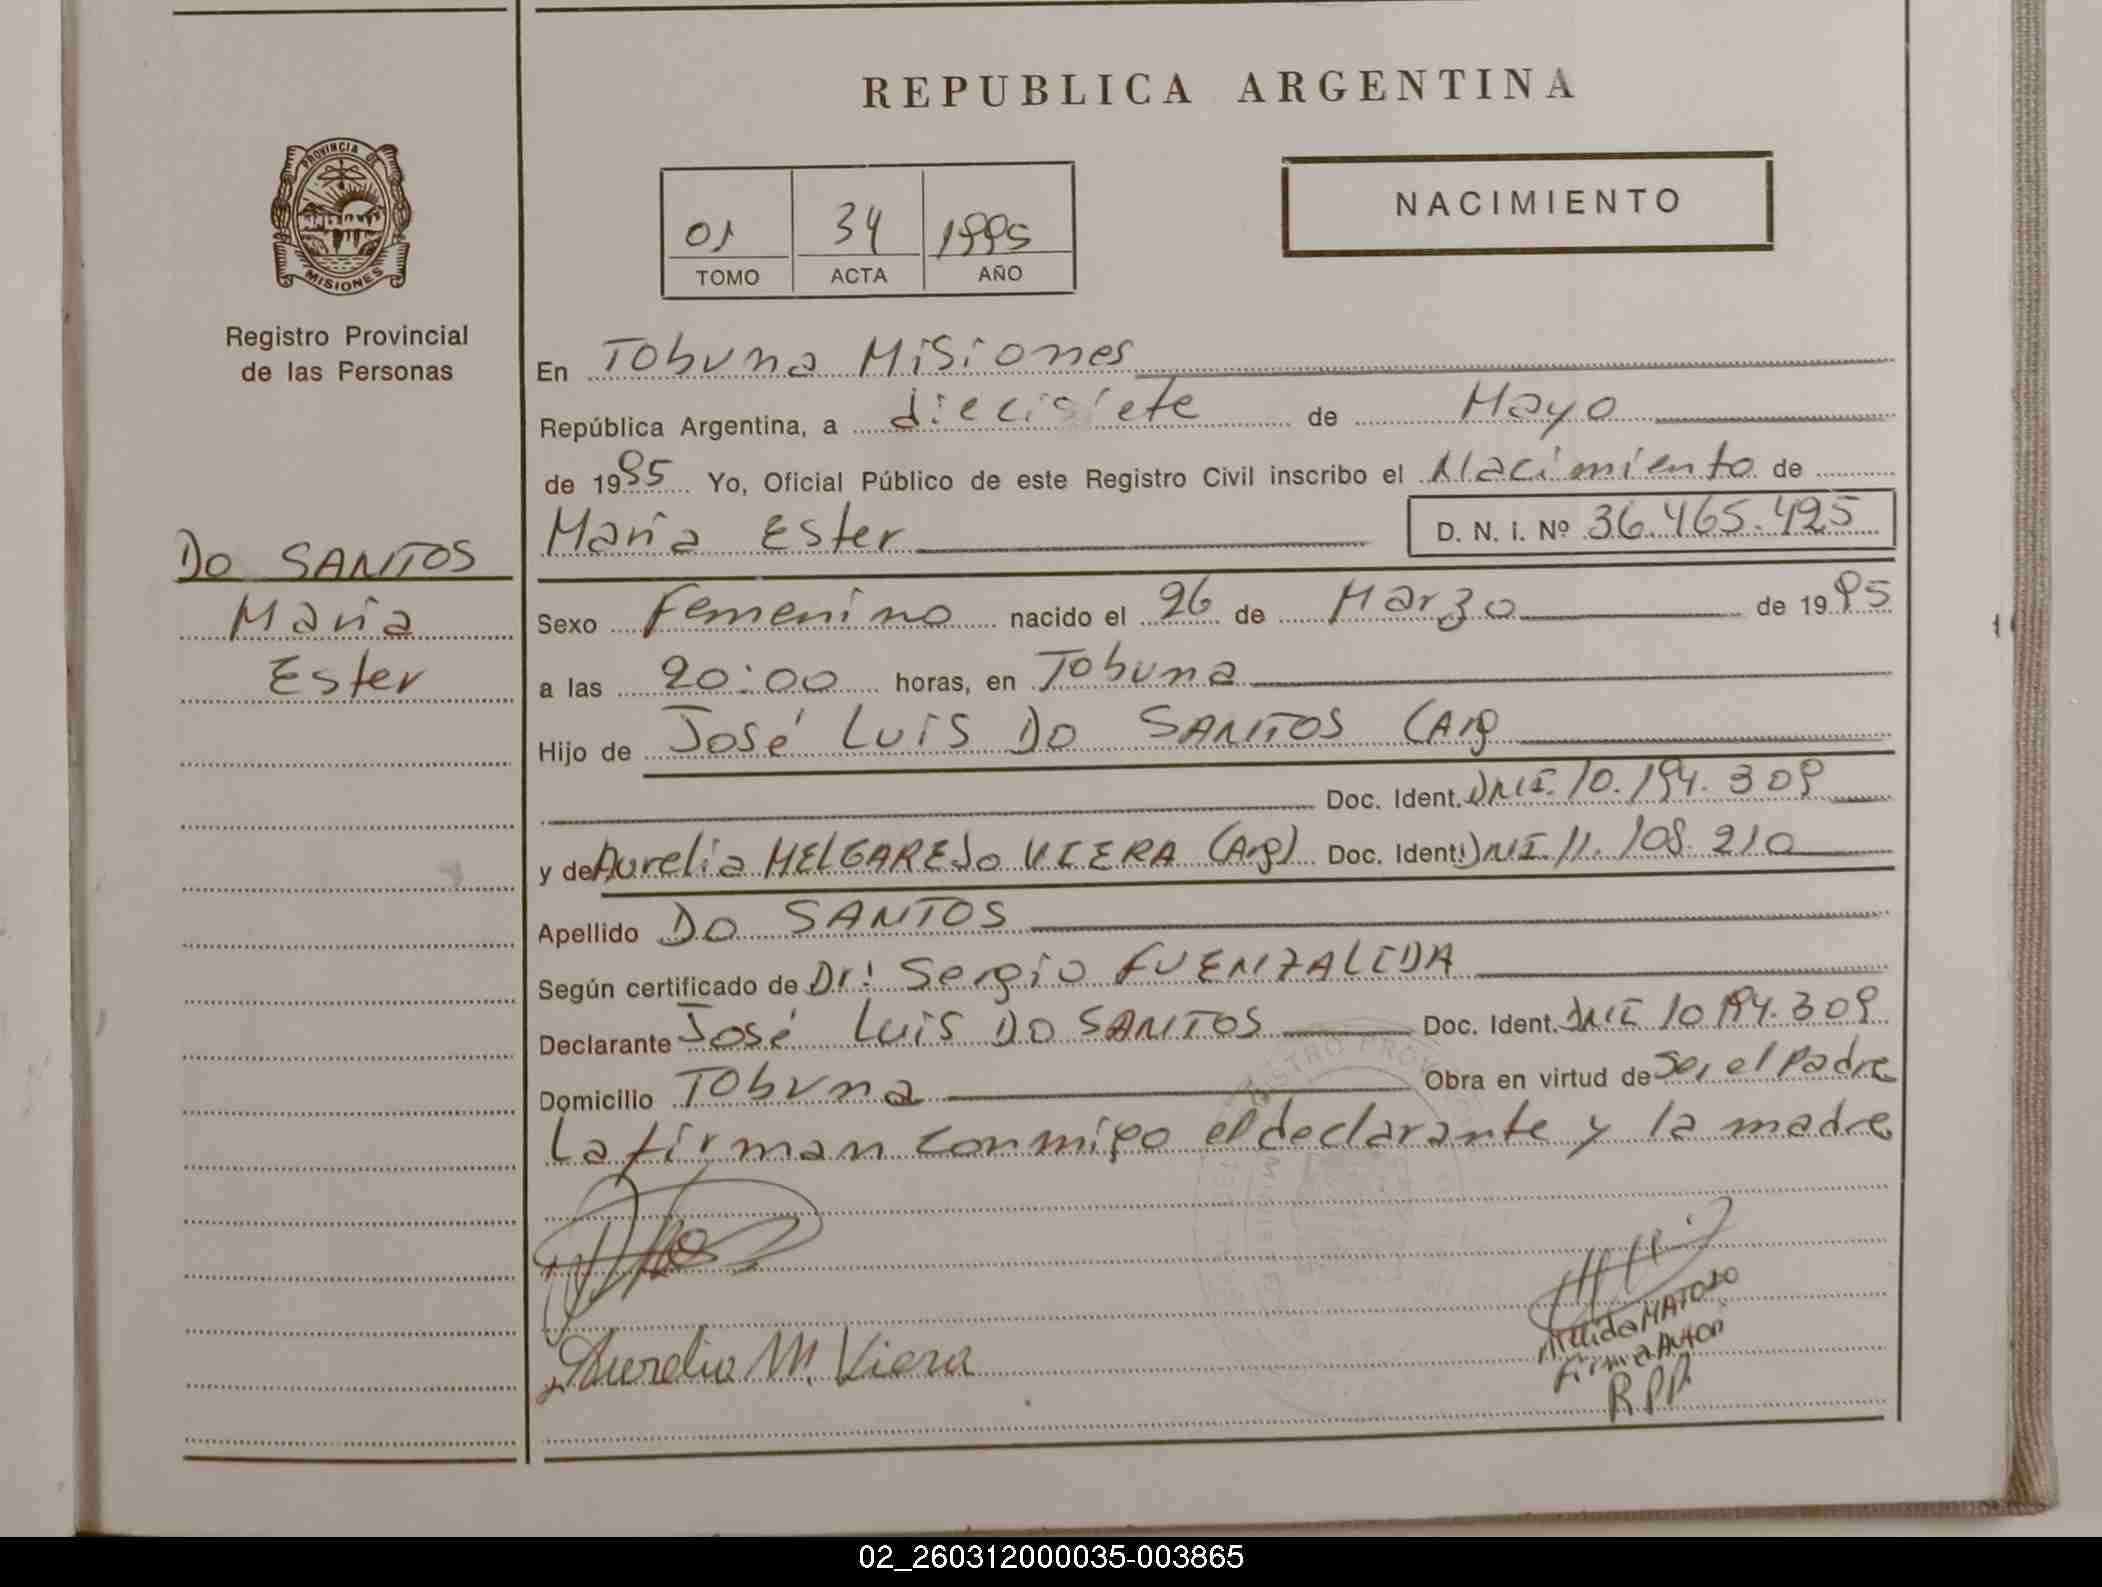 REPUBLICA ARGENTINA
PROVINCIA DE
MISIONES
Registro Provincial
de las Personas
01 34 1995
TOMO ACTA AÑO
NACIMIENTO
DO SANTOS
María
Ester
En Tobuna Misiones
República Argentina, a diecisiete de Mayo
de 1995 Yo, Oficial Público de este Registro Civil inscribo el Nacimiento de
María Ester D. N. I. Nº 36.465.425
Sexo Femenino nacido el 26 de Marzo de 1995
a las 20:00 horas, en Tobuna
Hijo de José Luis DO SANTOS (Arg
Doc. Ident. DNI. 10.194.309
y de Aurelia MELGAREJO VIERA (Arg) Doc. Ident. DNI. 11.108.210
Apellido DO SANTOS
Según certificado de Dr: Sergio FUENZALIDA
Declarante José Luis DO SANTOS Doc. Ident. DNI 10 194.309
Domicilio Tobuna Obra en virtud de Ser el Padre
La firman conmigo el declarante y la madre
Aurelia M. Viera
MATOSO
Firma Autori
RPP
02_260312000035-003865